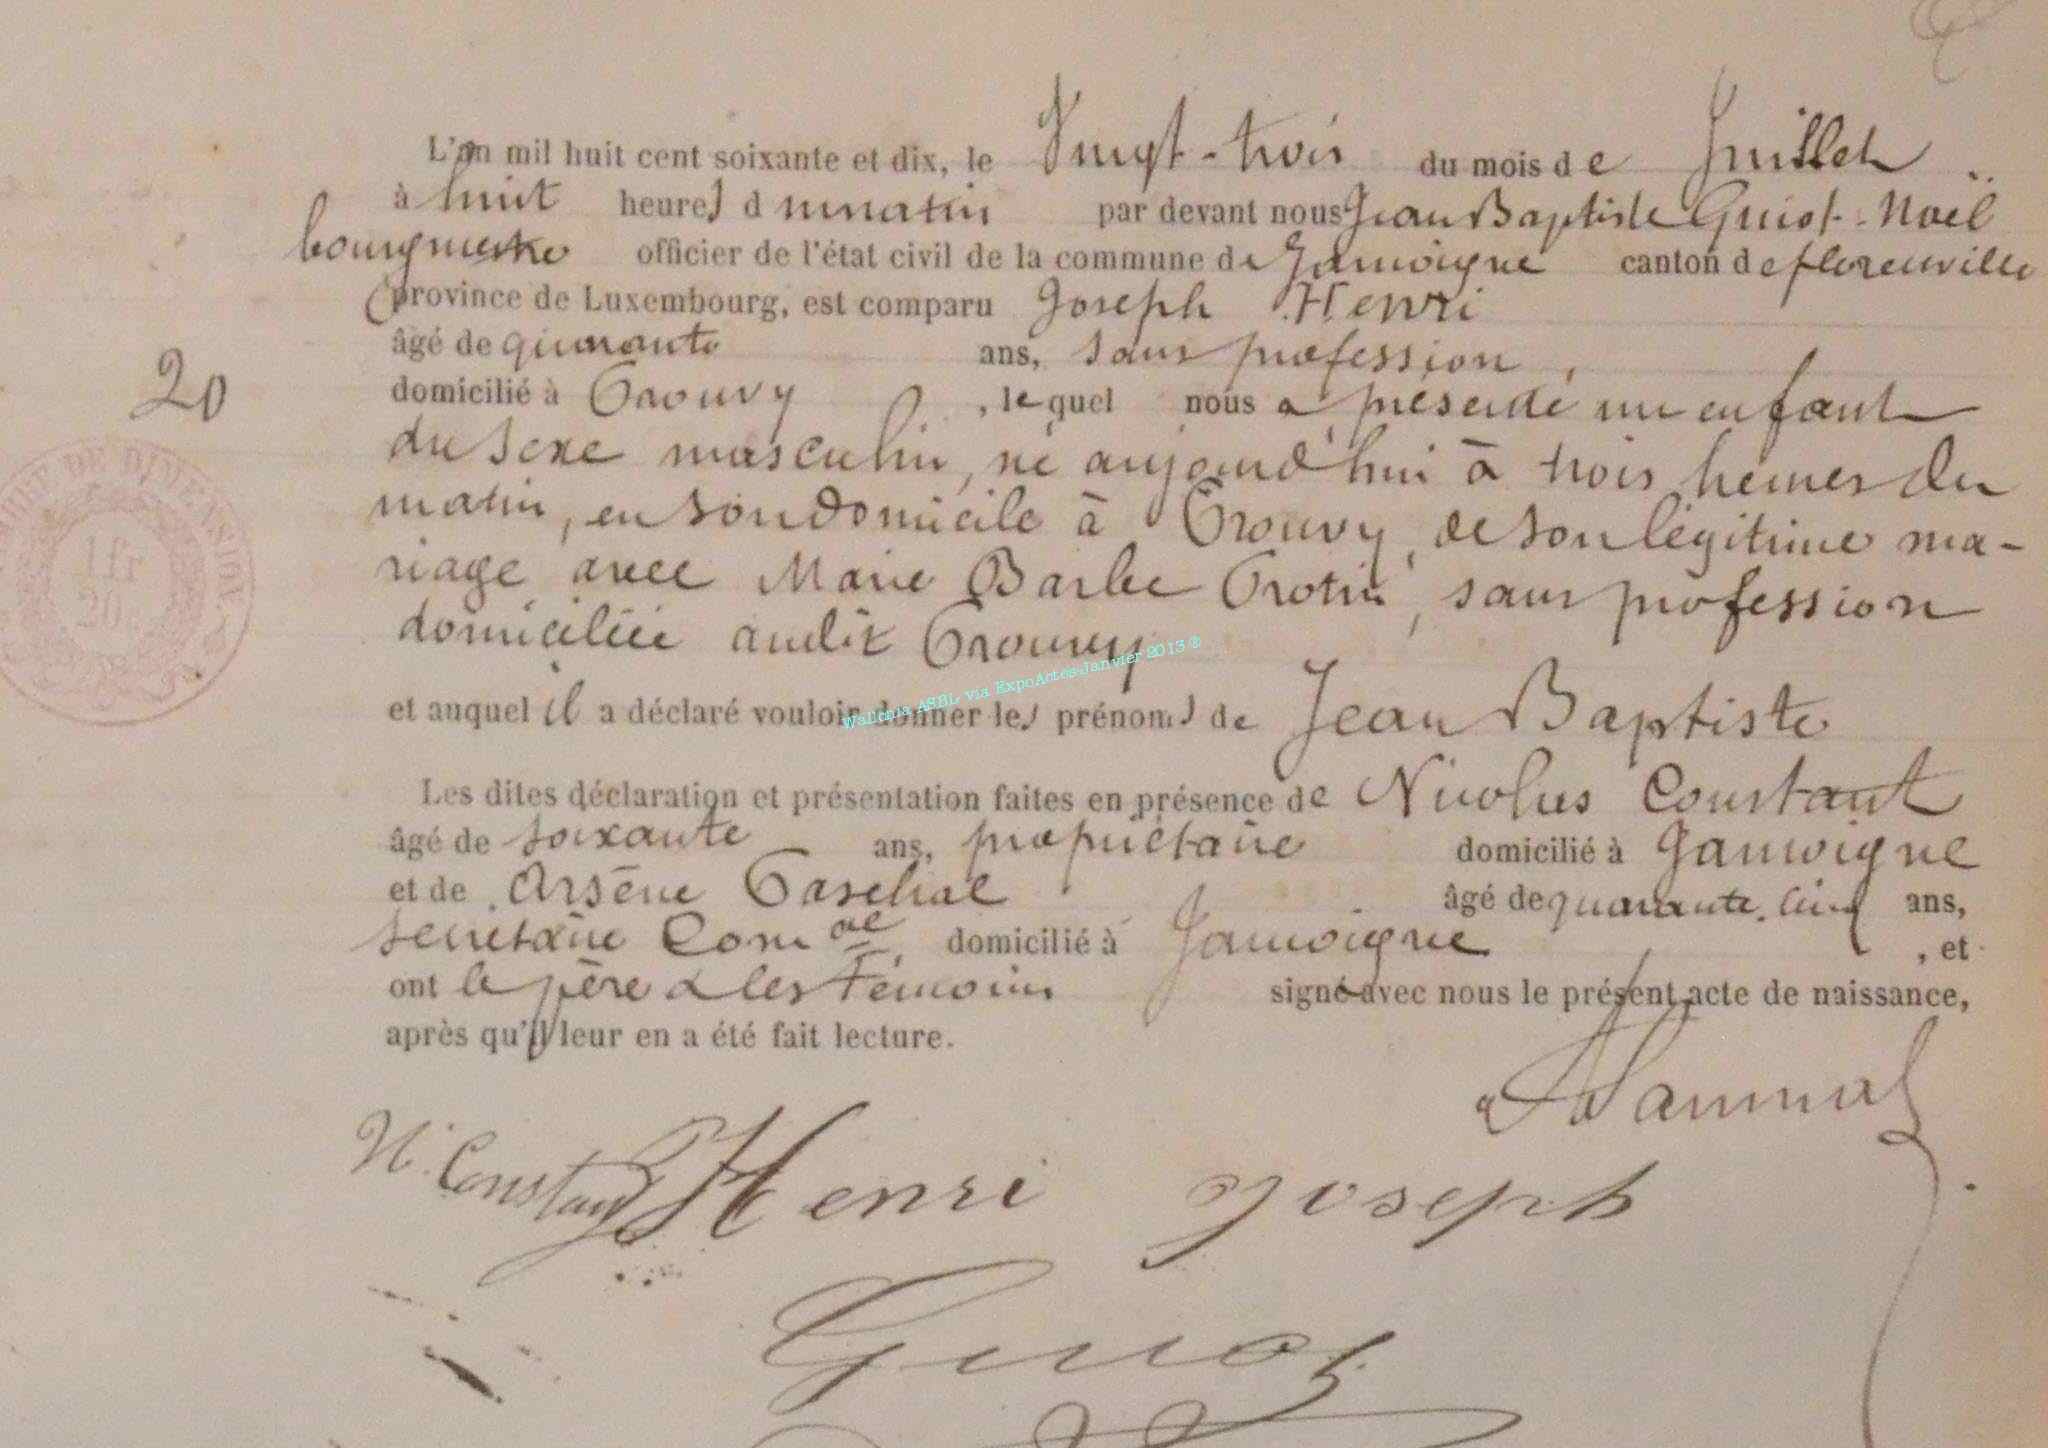 L'an mil huit cent soixante et dix, le Vingt-trois du mois de Juillet
à huit heures du matin par devant nous Jean Baptiste Guiot-Noël
bourgmestre officier de l'état civil de la commune de Jamoigne canton de florenville
province de Luxembourg, est comparu Joseph Henri
âgé de quarante ans, sans profession,
domicilié à Prouvy, lequel nous a présenté un enfant
20
du sexe masculin, né aujourd'hui à trois heures du
matin, en son domicile à Prouvy, de son légitime ma-
riage avec Marie Barbe Protin, sans profession
domiciliée audit Prouvy
Wallonia ASBL via ExpoActes-Janvier 2013 ®
et auquel il a déclaré vouloir donner les prénoms de Jean Baptiste
Les dites déclaration et présentation faites en présence de Nicolas Constant
âgé de soixante ans, propriétaire domicilié à Jamoigne
et de Arsène Paschal âgé de quarante-cinq ans,
secrétaire Comal, domicilié à Jamoigne, et
ont le père & les témoins signé avec nous le présent acte de naissance,
après qu'il leur en a été fait lecture.
N. Constant Henri Joseph
Guiot
1 fr
20